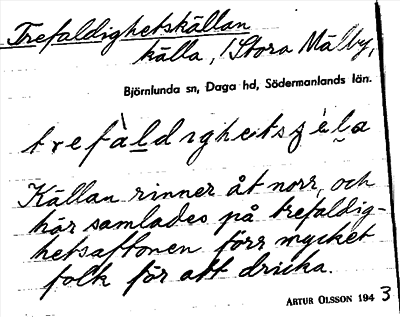 Trefaldighetskällan
källa, /Stora Mälby,
Björnlunda sn, Daga hd, Södermanlands län.
Källan rinner åt norr, och
här samlades på trefaldig-
hetsaftonen förr mycket
folk för att dricka.
ARTUR OLSSON 1943